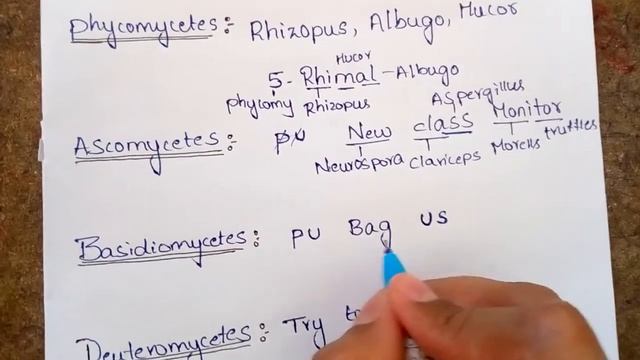 Phycomycetes:- Rhizopus, Albugo, Mucor
Mucor
5- Rhimal-Albugo
phycomy Rhizopus
Aspergillus
Ascomycetes:- New class Monitor
Neurospora Claviceps Morells truffles
Basidiomycetes: PU Bag US
Deuteromycetes:- Try